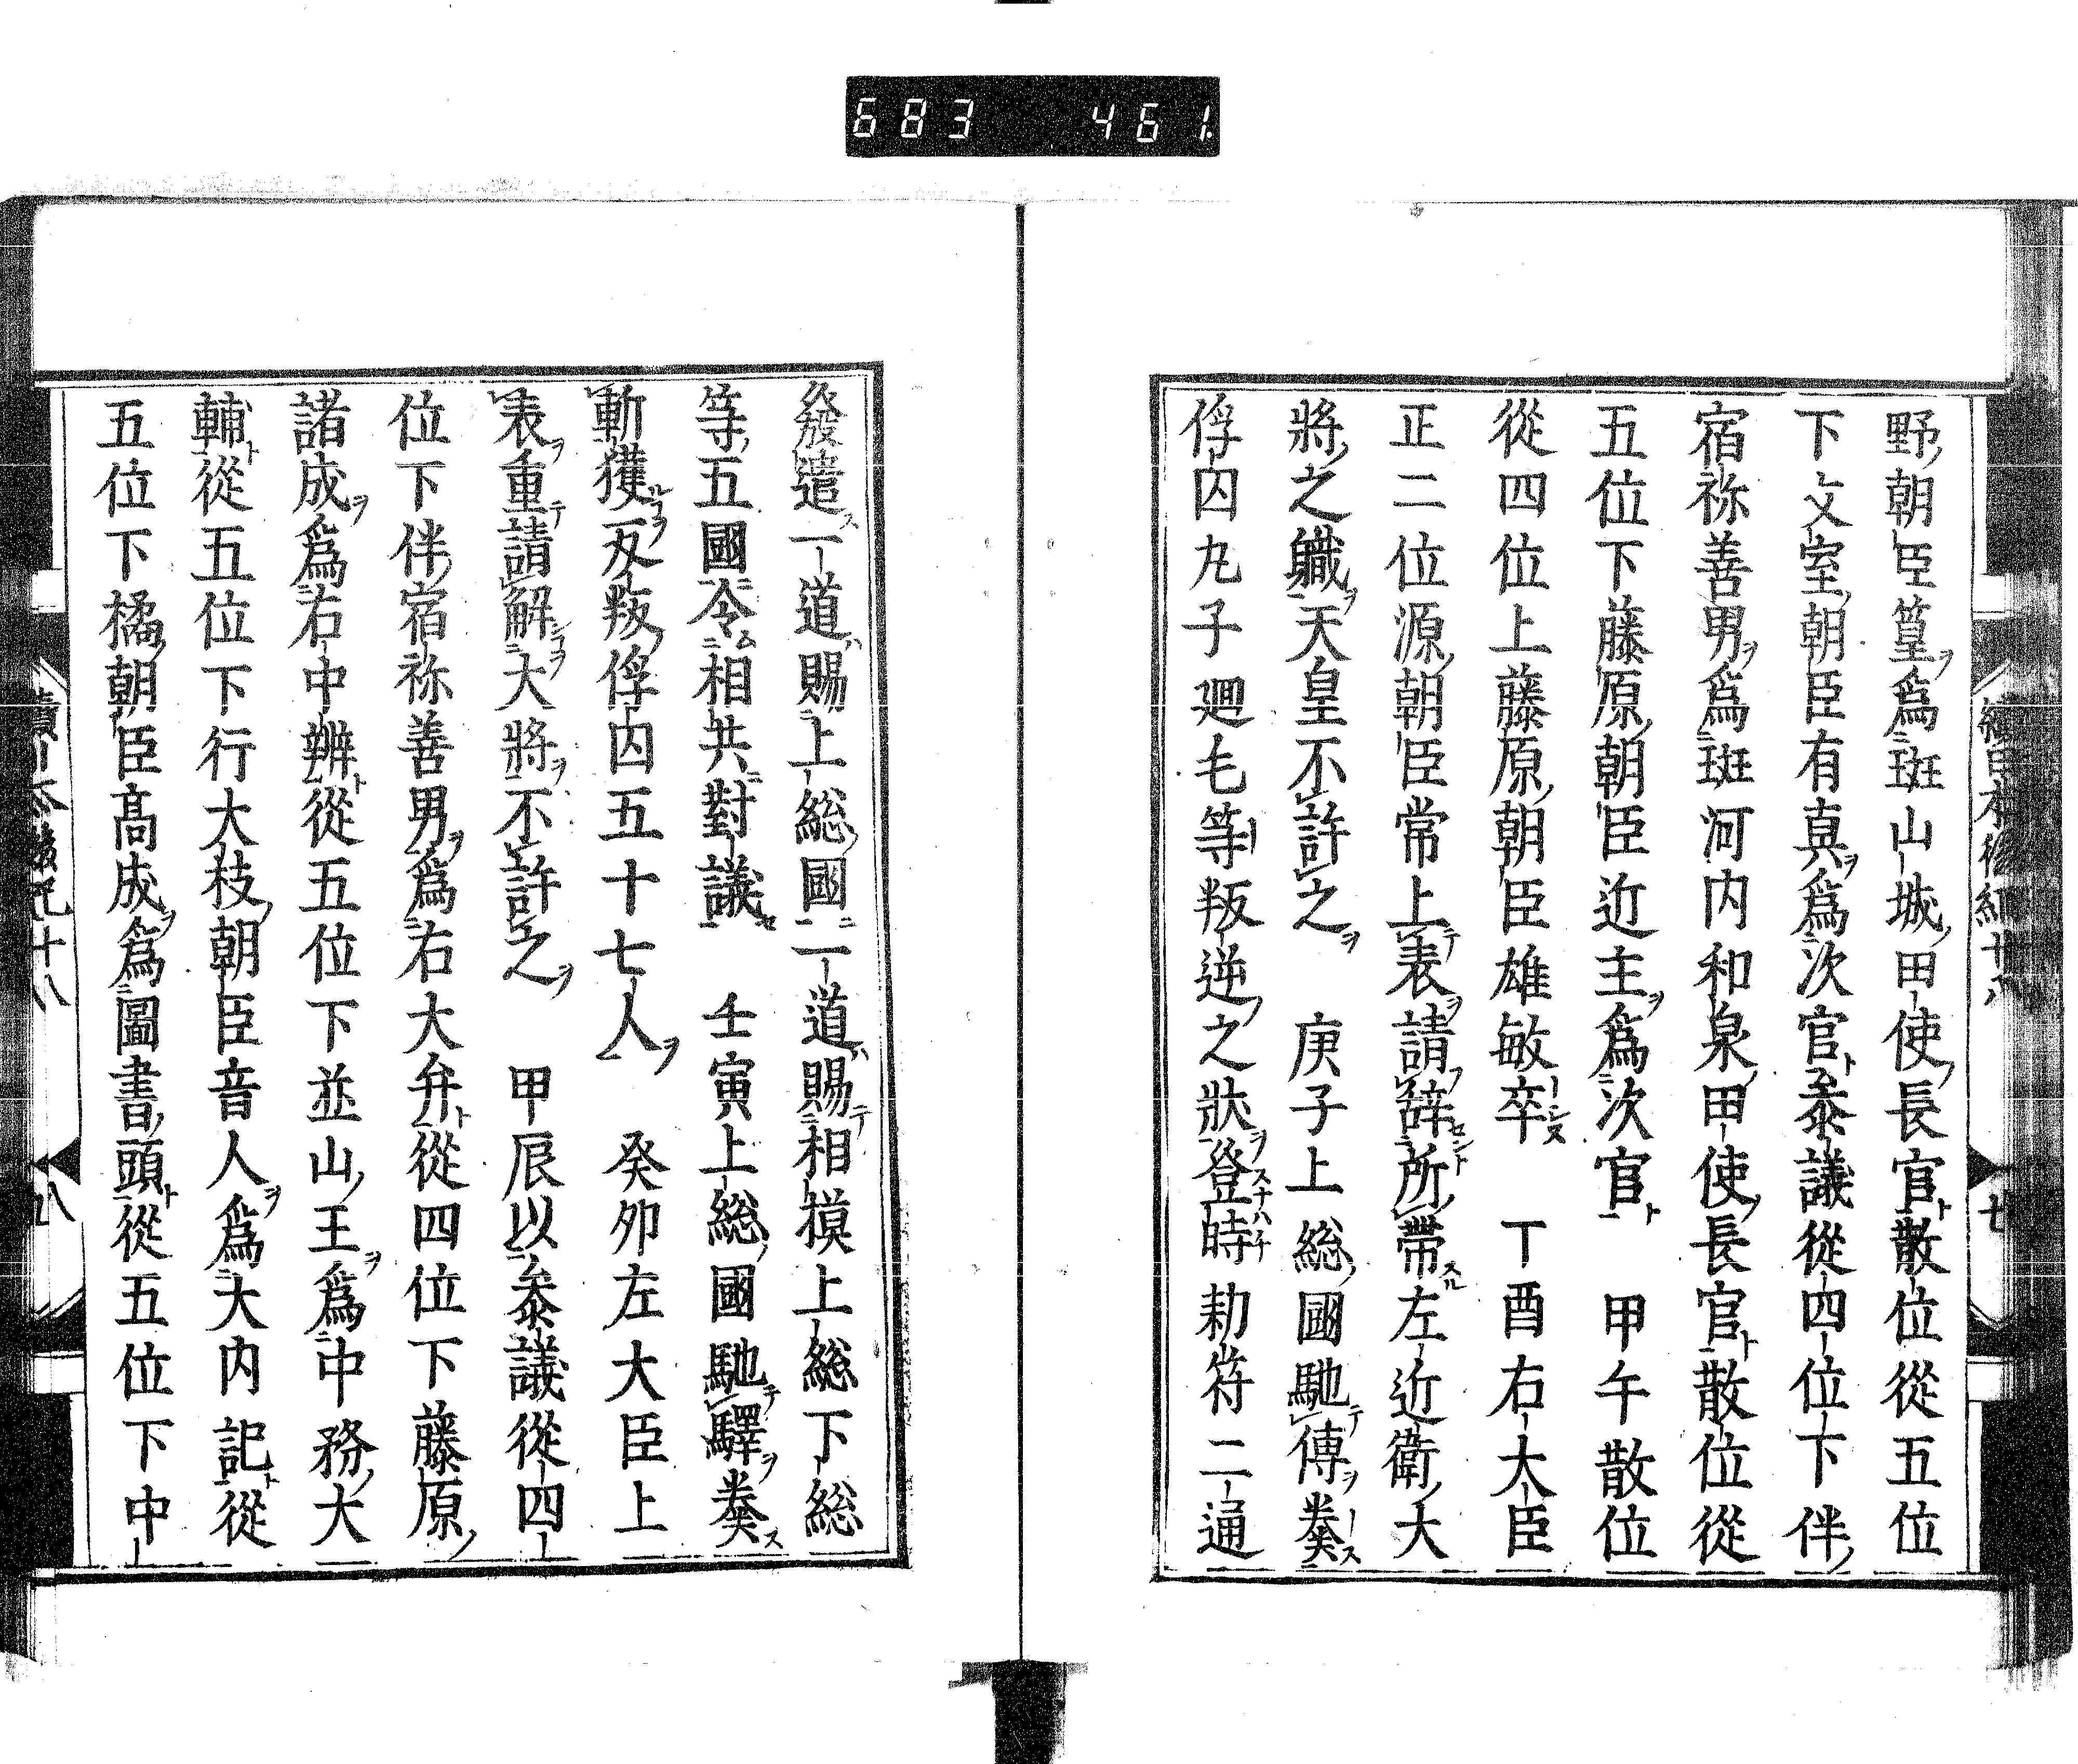 683 461
野朝臣篁爲班山城田使長官散位從五位
下文室朝臣有真爲次官叅議從四位下伴
宿祢善男爲班河内和泉田使長官散位從
五位下藤原朝臣近主爲次官 甲午散位
從四位上藤原朝臣雄敏卒 丁酉右大臣
正二位源朝臣常上表請辞所帶左近衛大
將之職天皇不許之 庚子上総國馳傳奏
俘囚丸子廻毛等叛逆之狀登時勅符二通
發遣一道賜上総國一道賜相摸上総下総
等五國令相共對議 壬寅上総國馳驛奏
斬獲反叛俘囚五十七人 癸卯左大臣上
表重請解大將不許之 甲辰以叅議從四
位下伴宿祢善男爲右大弁從四位下藤原
諸成爲右中辨從五位下並山王爲中務大
輔從五位下行大枝朝臣音人爲大内記從
五位下橘朝臣高成爲圖書頭從五位下中
八